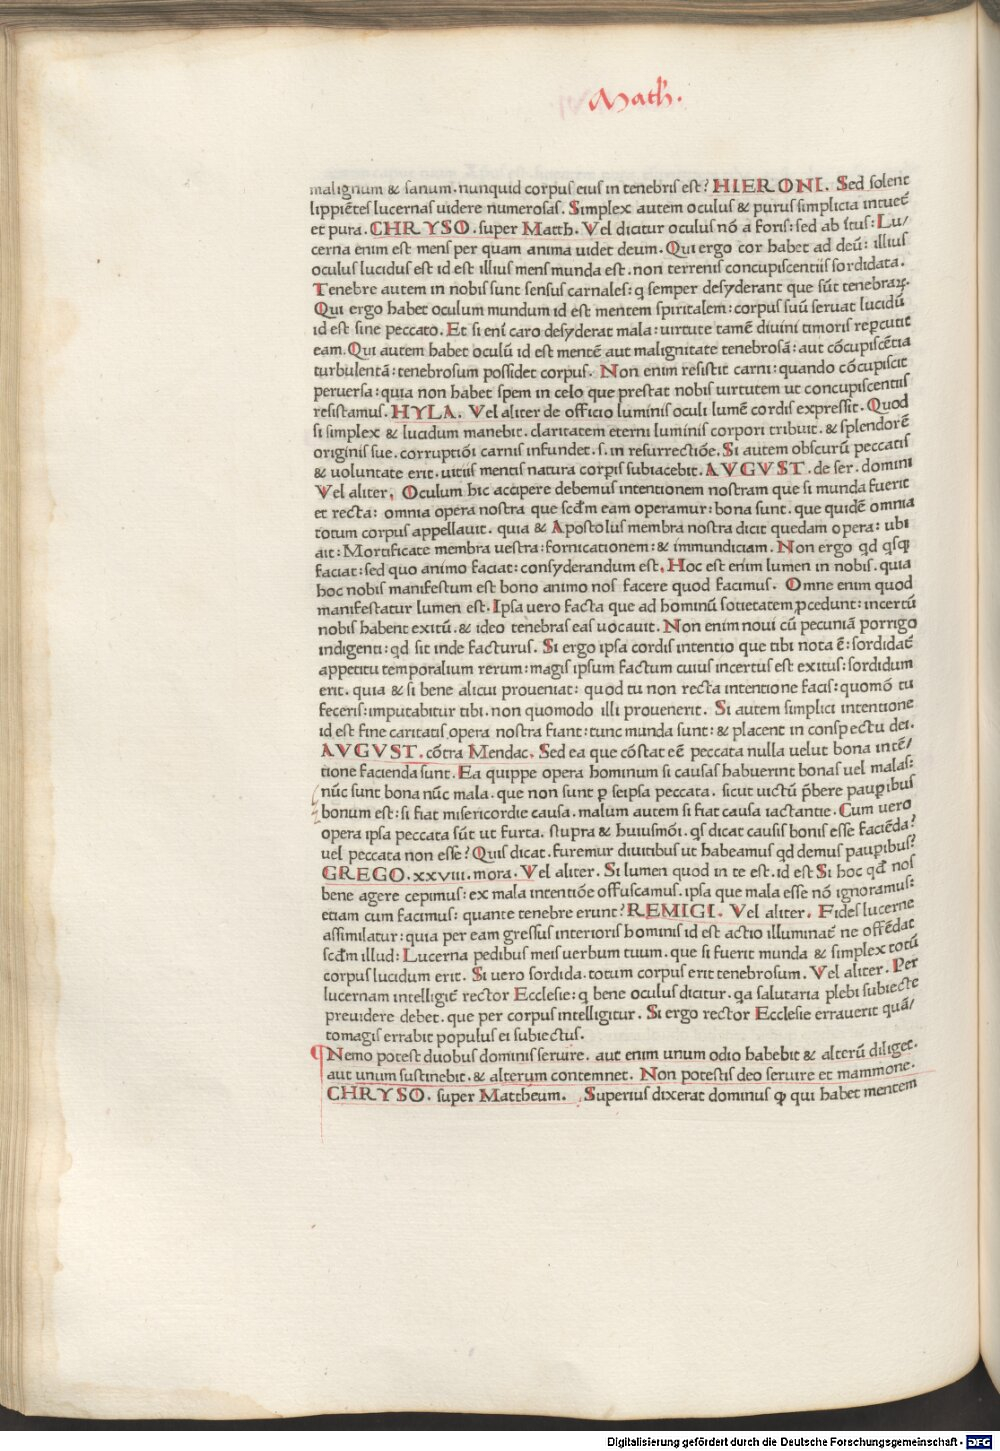 Math.
malignum & sanum. nunquid corpus eius in tenebris est? HIERONI. Sed solent
lippiētes lucernas uidere numerosas. Simplex autem oculus & purus simplicia intuet̄
et pura. CHRYSO. super Matth. Vel dicitur oculus nō a foris: sed ab ītus: Lu/
cerna enim est mens per quam anima uidet deum. Qui ergo cor habet ad deū: illius
oculus lucidus est id est illius mens munda est. non terrenis concupiscentiis sordidata.
Tenebre autem in nobis sunt sensus carnales: q semper desyderant que sūt tenebraꝝ.
Qui ergo habet oculum mundum id est mentem spiritalem: corpus suū seruat lucidū
id est sine peccato. Et si eni caro desyderat mala: uirtute tamē diuini timoris reꝑcutit
eam. Qui autem habet oculū id est mentē aut malignitate tenebrosā: aut cōcupiscētia
turbulentā: tenebrosum possidet corpus. Non enim resistit carni: quando cōcupiscit
peruersa: quia non habet spem in celo que prestat nobis uirtutem ut concupiscentiis
resistamus. HYLA. Vel aliter de officio luminis oculi lumē cordis expressit. Quod
si simplex & lucidum manebit. claritatem eterni luminis corpori tribuit. & splendorē
originis sue. corruptiōi carnis infundet. s. in resurrectiōe. Si autem obscurū peccatis
& uoluntate erit. uitiis mentis natura corꝑis subiacebit. AVGVST. de ser. domini
Vel aliter, Oculum hic accipere debemus intentionem nostram que si munda fuerit
et recta: omnia opera nostra que scd̄m eam operamur: bona sunt. que quidē omnia
totum corpus appellauit. quia & Apostolus membra nostra dicit quedam opera: ubi
ait: Mortificate membra uestra: fornicationem: & immundiciam. Non ergo qd qsꝗ
faciat: sed quo animo faciat: consyderandum est, Hoc est enim lumen in nobis. quia
hoc nobis manifestum est bono animo nos facere quod facimus. Omne enim quod
manifestatur lumen est. Ipsa uero facta que ad hominū societatem ꝓcedunt: incertū
nobis habent exitū. & ideo tenebras eas uocauit. Non enim noui cū pecuniā porrigo
indigenti: qd sit inde facturus. Si ergo ipsa cordis intentio que tibi nota ē: sordidat̄
appetitu temporalium rerum: magis ipsum factum cuius incertus est exitus: sordidum
erit. quia & si bene alicui proueniat: quod tu non recta intentione facis: quomō tu
feceris: imputabitur tibi. non quomodo illi prouenerit. Si autem simplici intentione
id est fine caritatis opera nostra fiant: tunc munda sunt: & placent in conspectu dei.
AVGVST. cōtra Mendac. Sed ea que cōstat eē peccata nulla uelut bona intē/
tione facienda sunt. Ea quippe opera hominum si causas habuerint bonas uel malas:
nūc sunt bona nūc mala. que non sunt ꝑ seipsa peccata. sicut uictū p̄bere pauꝑibus
bonum est: si fiat misericordie causa. malum autem si fiat causa iactantie. Cum uero
opera ipsa peccata sūt ut furta. stupra & huiusmōi. qs dicat causis bonis esse faciēda?
uel peccata non esse? Quis dicat. furemur diuitibus ut habeamus qd demus pauꝑibus?
GREGO. xxviii. mora. Vel aliter. Si lumen quod in te est. id est Si hoc qd̄ nos
bene agere cepimus: ex mala intentiōe offuscamus. ipsa que mala esse nō ignoramus:
etiam cum facimus: quante tenebre erunt? REMIGI. Vel aliter. Fides lucerne
assimilatur: quia per eam gressus interioris hominis id est actio illuminat̄ ne offēdat
scd̄m illud: Lucerna pedibus meis uerbum tuum. que si fuerit munda & simplex totū
corpus lucidum erit. Si uero sordida. totum corpus erit tenebrosum. Vel aliter. Per
lucernam intelligit̄ rector Ecclesie: q bene oculus dicitur. qa salutaria plebi subiecte
preuidere debet. que per corpus intelligitur. Si ergo rector Ecclesie errauerit quā/
tomagis errabit populus ei subiectus.
¶Nemo potest duobus dominis seruire. aut enim unum odio habebit & alterū diliget.
aut unum sustinebit. & alterum contemnet. Non potestis deo seruire et mammone.
CHRYSO. super Mattheum. Superius dixerat dominus ꝙ qui habet mentem
Digitalisierung gefördert durch die Deutsche Forschungsgemeinschaft - DFG